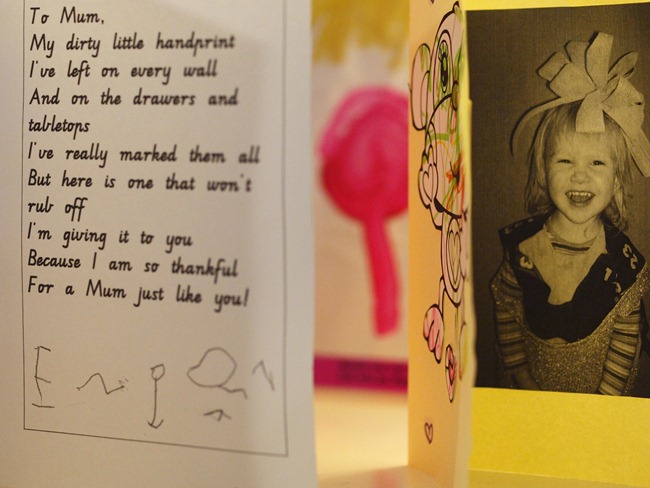 To Mum,
My dirty little handprint
I've left on every wall
And on the drawers and
tabletops
I've really marked them all
But here is one that won't
rub off
I'm giving it to you
Because I am so thankful
For a Mum just like you!